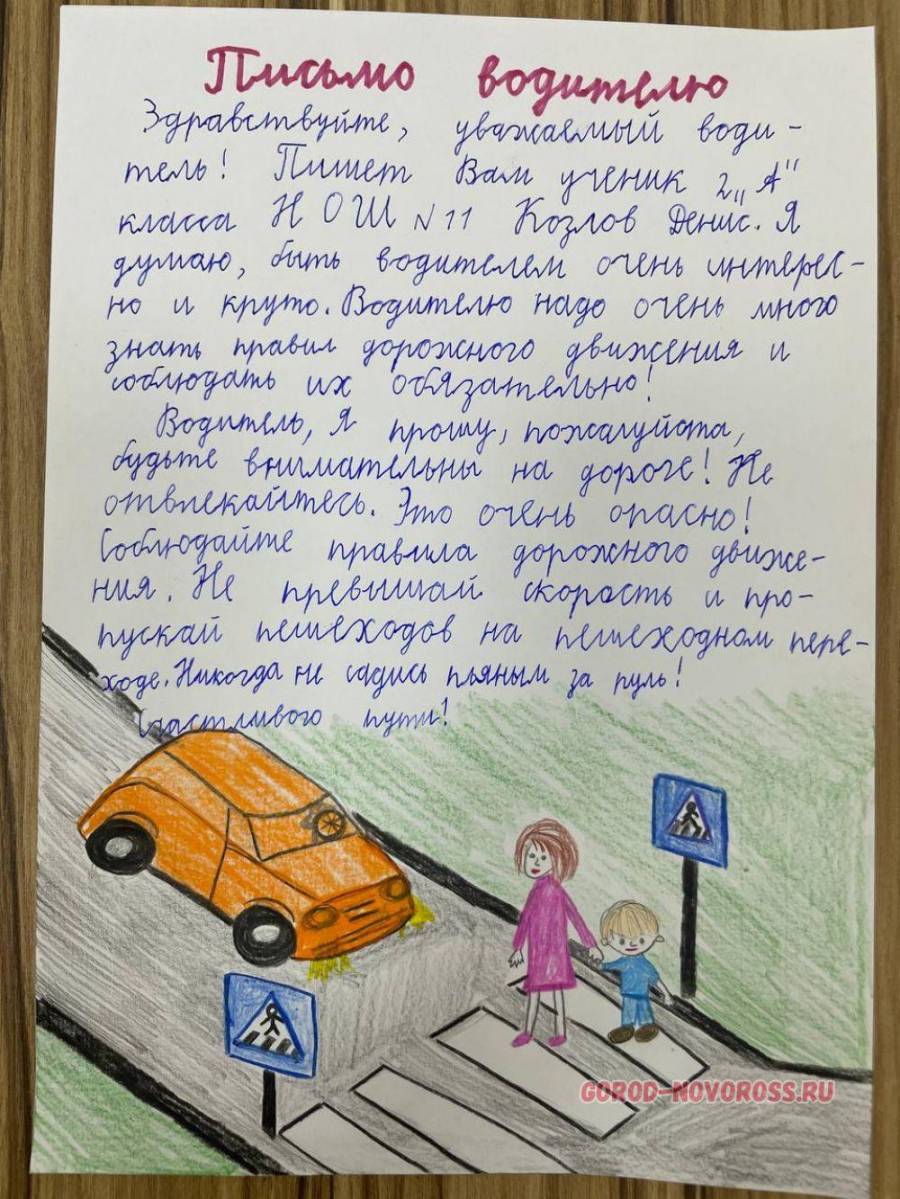 Письмо водителю
Здравствуйте, уважаемый води-
тель! Пишет Вам ученик 2 „А"
класса НОШ N11 Козлов Денис. Я
думаю, быть водителем очень интерес-
но и круто. Водителю надо очень много
знать правил дорожного движения и
соблюдать их обязательно!
Водитель, Я прошу, пожалуйста,
будьте внимательны на дороге! Не
отвлекайтесь. Это очень опасно!
Соблюдайте правила дорожного движе-
ния. Не превышай скорость и про-
пускай пешеходов на пешеходном пере-
ходе. Никогда не садись пьяным за руль!
Счастливого пути!
GOROD-NOVOROSS.RU